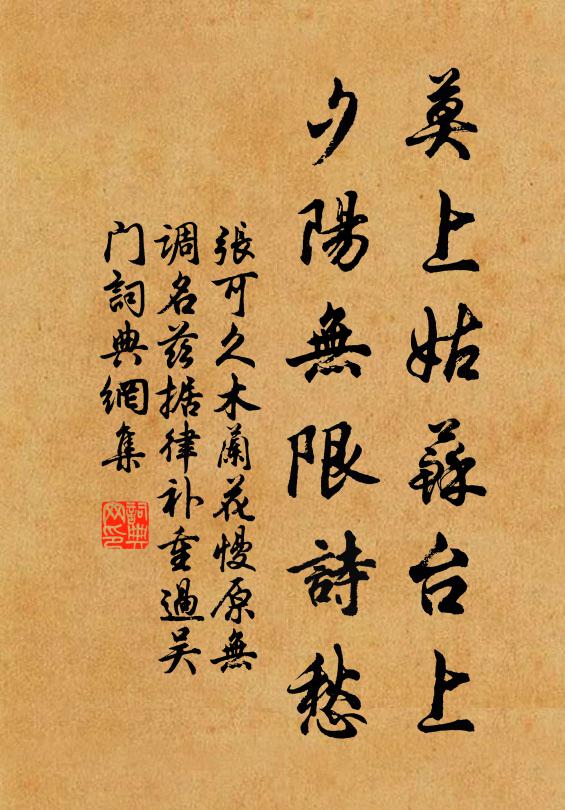 莫上姑蘇台上
夕陽無限詩愁
張可久木蘭花慢原無
调名兹据律补重過吴
门詞典網集
詞典网印